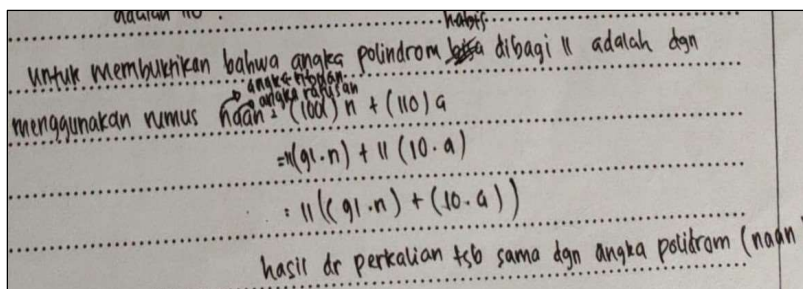 adalah 110.
habis
untuk membuktikan bahwa angka polindrom dibagi 11 adalah dgn
angka ribuan
angka ratusan
menggunakan rumus naan = (1001) n + (110) a
= 11(91.n) + 11 (10.a)
= 11((91.n) + (10.a))
hasil dr perkalian tsb sama dgn angka polidrom (naan